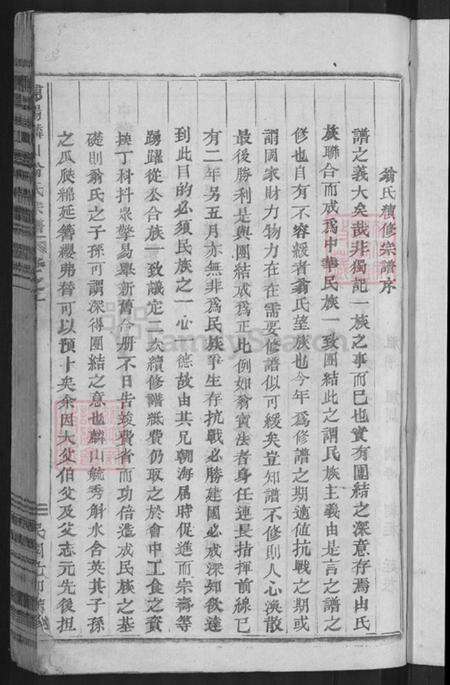 翁氏續修宗譜序
譜之義大矣哉非獨記一族之事而已也實有團結之深意存焉由氏
族聯合而成為中華民族一致團結此之謂民族主義由是言之譜之
修也自有不容緩者翁氏望族也今年為修譜之期適值抗戰之期或
謂國家財力物力在在需要修譜似可緩矣豈知譜不修則人心渙散
最後勝利是與團結成為正比例如翁賓法者身任連長指揮前線已
有二年另五月亦無非為民族爭生存抗戰必勝建國必成深知欲達
到此目的必須民族之一心一德故由其兄朝海屆時促進而宗濤等
踴躍從公合族一致議定三次續修譜紙費仍取之於會中工食之資
按丁科抖眾擎易舉新舊合册不日告竣費省而功倍造成民族之基
礎則翁氏之子孫可謂深得團結之意也麟山毓秀斛水含英其子孫
之瓜瓞綿延簪纓弗替可以預卜矣余因大父伯父及父志元先後担
FamilySearch